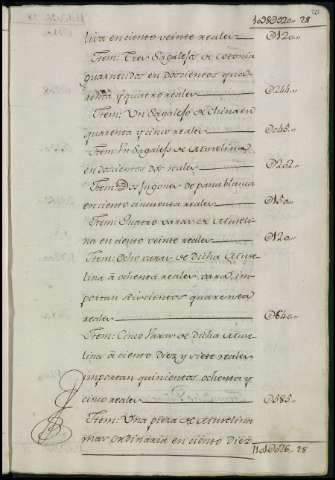 liva en ciento veinte reales — @120..
Ytem: Tres Zagalejos de Cotonia
guarnecidos en Doscientos qua-
renta y quatro reales — @244..
Ytem: Un Zagalejo de China en
quarenta y cinco reales — @045..
Ytem: Un Zagalejo de Muselina
en doscientos dos reales — @202..
Ytem: Dos de pana blanca
en ciento cinquenta reales — @150..
Ytem: Quatro varas de Museli-
na en ciento veinte reales — @120..
Ytem: Ocho varas de dicha Muse-
lina à ochenta reales vara, im-
portan seiscientos quarenta
reales — @640..
Ytem: Cinco varas de dicha Muse-
lina à ciento diez y siete reales
importan quinientos ochenta y
cinco reales — @585..
Ytem: Una pieza de Muselina
mas ordinaria en ciento diez